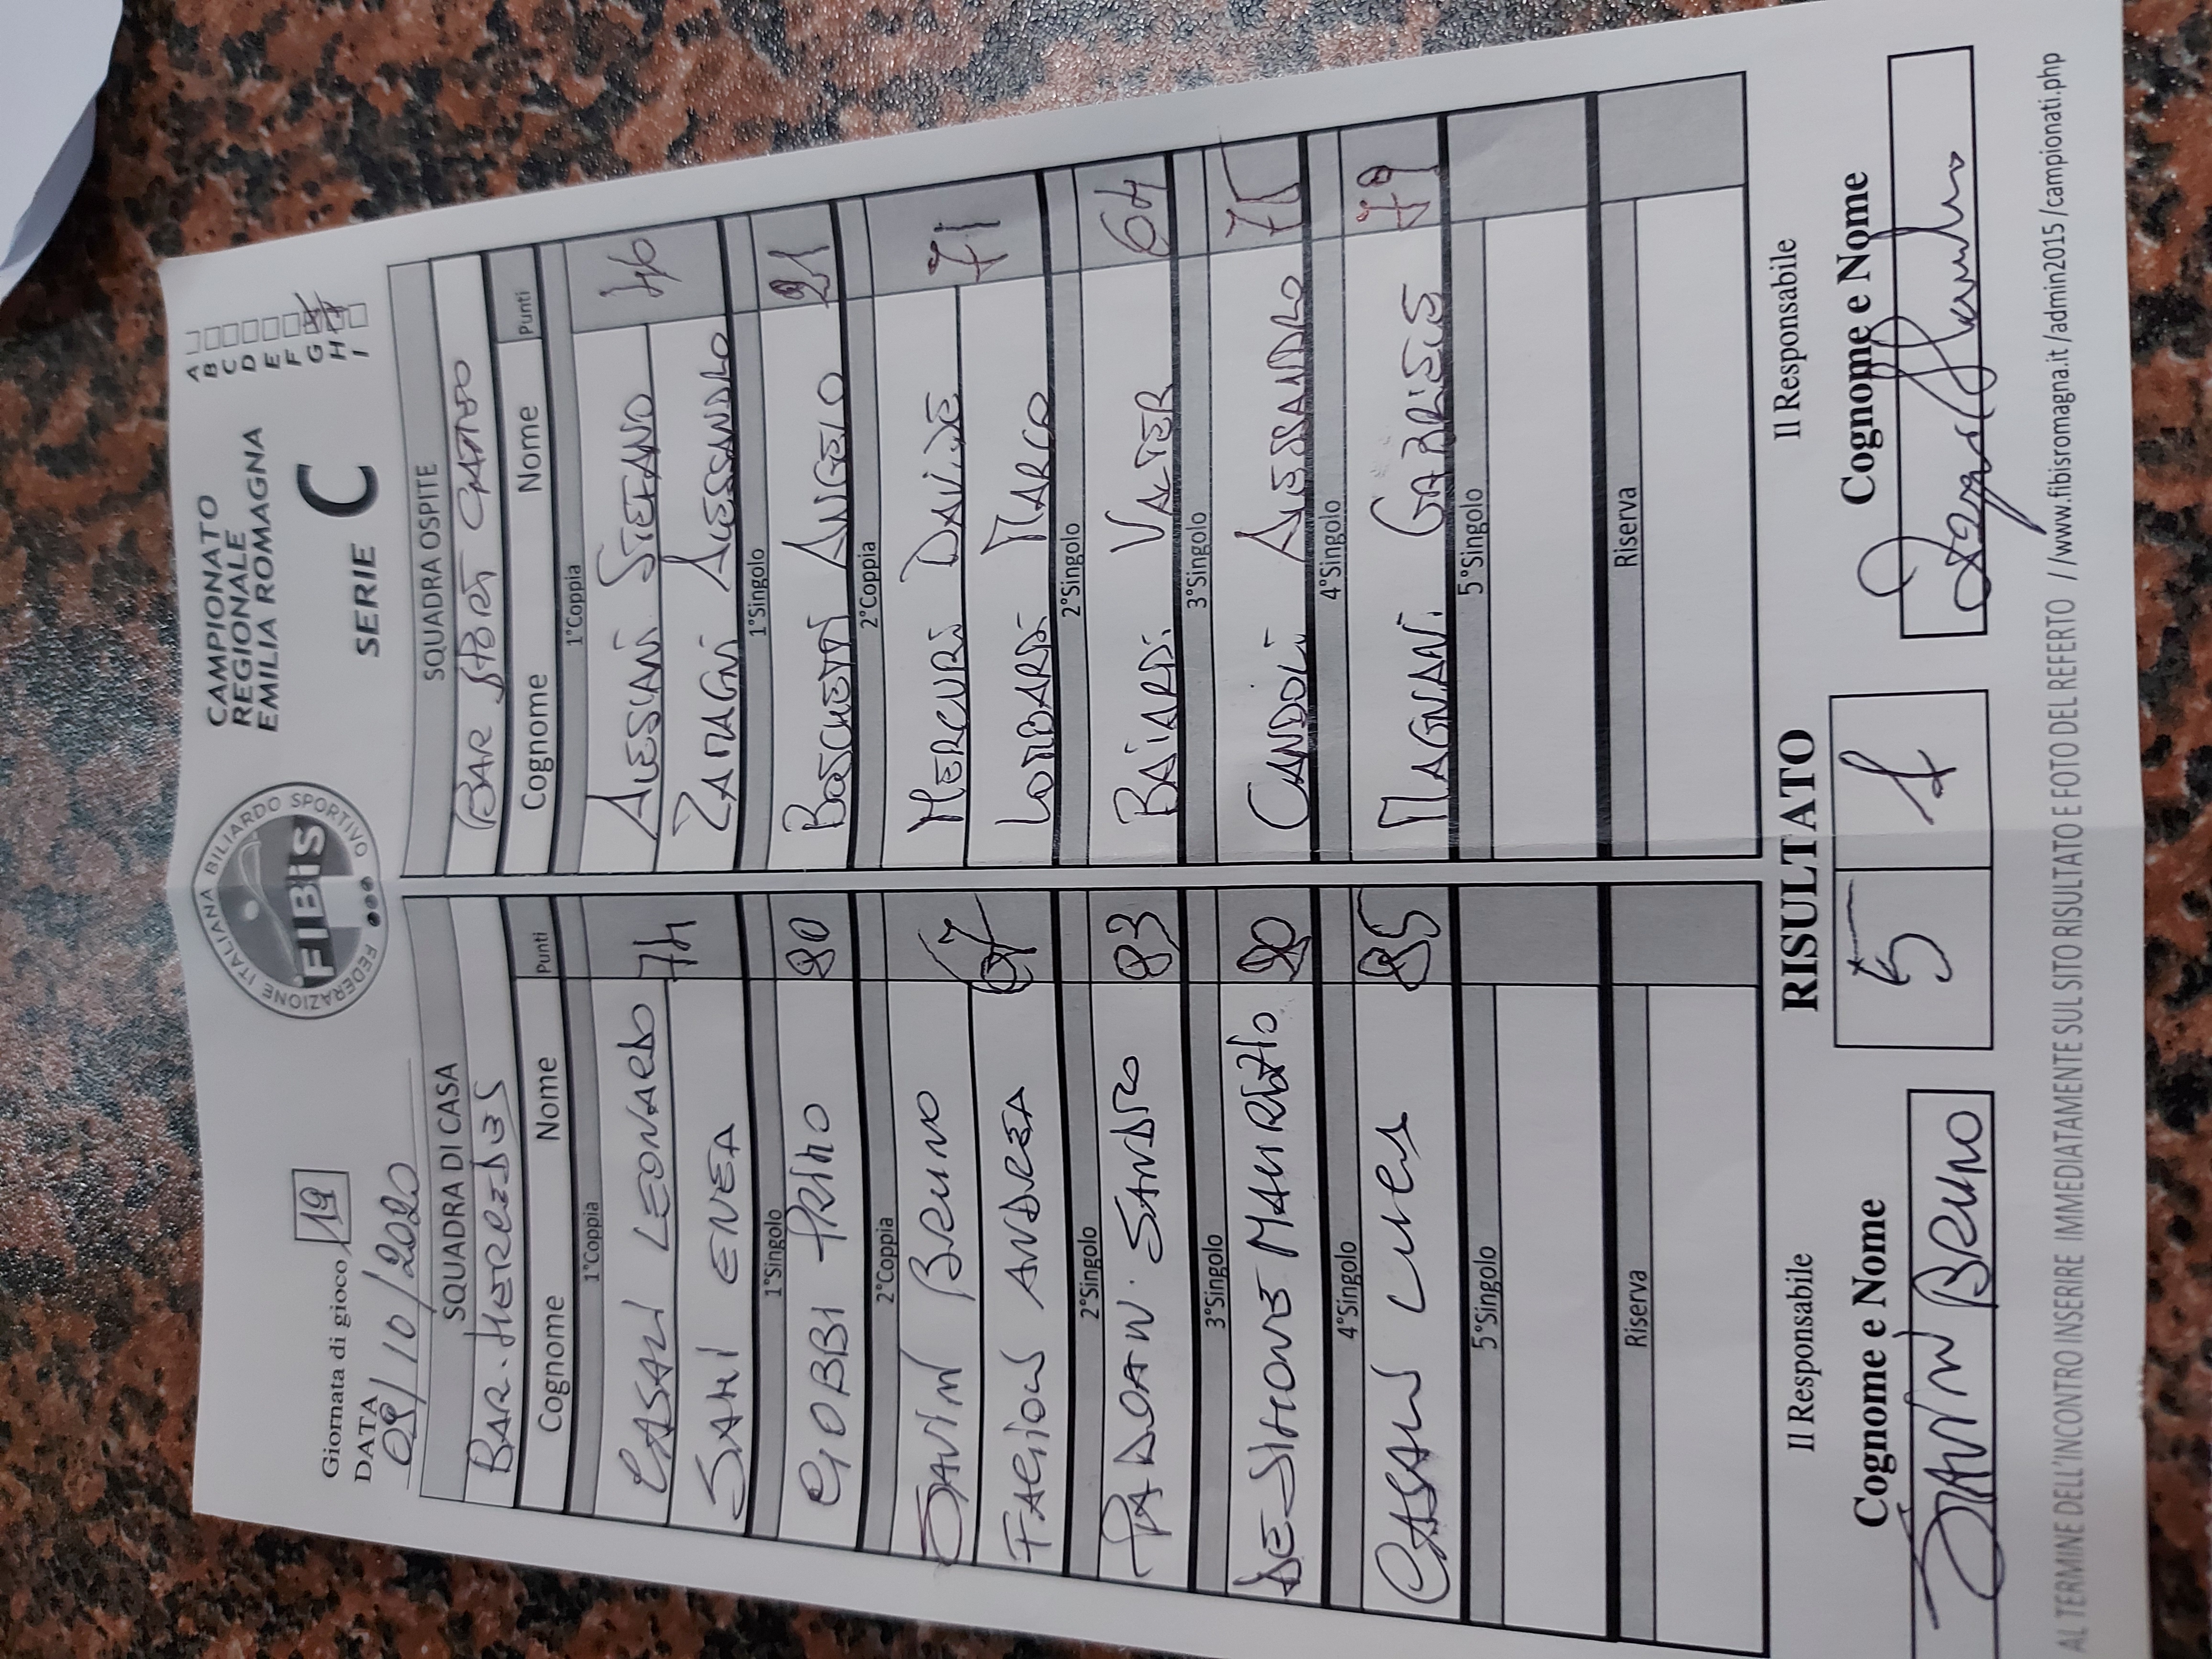 Giornata di gioco 19
DATA
09/10/2020
FEDERAZIONE ITALIANA BILIARDO SPORTIVO
FIBiS
CAMPIONATO
REGIONALE
EMILIA ROMAGNA
SERIE C
A
B
C
D
E
F
G
H
I
SQUADRA DI CASA
BAR
Cognome Nome Punti
1°Coppia
CASALI LEONARDO 74
SAMI ENEA
1°Singolo
GOBBI PRIMO 80
2°Coppia
SAVINI BRUNO
FAGIOLI ANDREA 67
2°Singolo
PADOAN SANDRO 83
3°Singolo
DESIMONE MAURIZIO 90
4°Singolo
CASALI LUCA 85
5°Singolo
Riserva
SQUADRA OSPITE
BAR SPORT
Cognome Nome Punti
1°Coppia
ALESSANI STEFANO 46
ZAMAGNI ALESSANDRO
1°Singolo
BOSCHETTI ANGELO 21
2°Coppia
MERCURI DAVIDE 71
LOMBARDI MARCO
2°Singolo
BAIARDI VALTER 64
3°Singolo
CANDOLI ALESSANDRO 75
4°Singolo
MAGNANI GABRIELE 79
5°Singolo
Riserva
Il Responsabile
Cognome e Nome
SAVINI BRUNO
RISULTATO
5 1
Il Responsabile
Cognome e Nome
AL TERMINE DELL'INCONTRO INSERIRE IMMEDIATAMENTE SUL SITO RISULTATO E FOTO DEL REFERTO //www.fibisromagna.it/admin2015/campionati.php